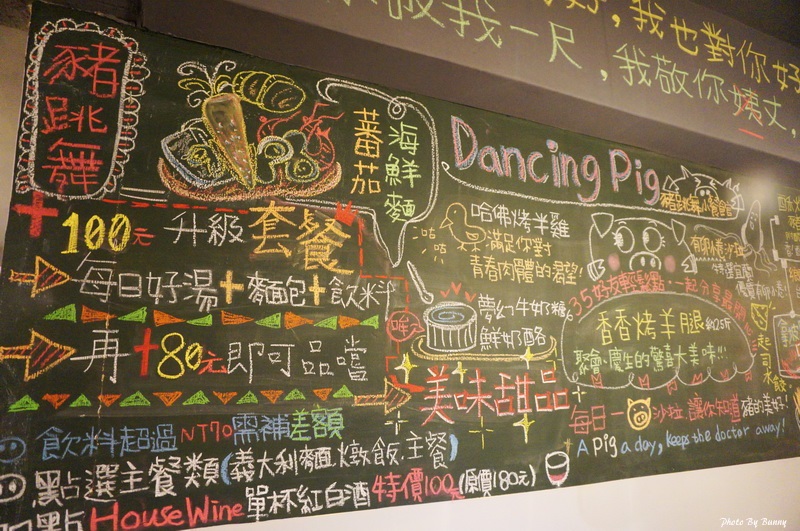 我也對你好
敬我一尺，我敬你姨丈，
豬跳舞
蕃茄
海鮮麵
Dancing Pig
+100元升級套餐
每日好湯+麵包+飲料
再+80元即可品嚐
美味甜品
飲料超過NT70需補差額
點選主餐類(義大利麵.燉飯.主餐)
House Wine 單杯紅白酒 特價100元(原價180元)
哈佛烤半雞
滿足你對
青春肉體的渴望!
咕咕
夢幻牛奶糖
鮮奶酪
35好友輕鬆點:一起分享最
香香烤羊腿 約25斤
聚會.慶生的驚喜大美味!!!
起司冰餃
每日一沙拉 讓你知道 豬的美好!
A pig a day, keeps the doctor away!
Photo By Bunny